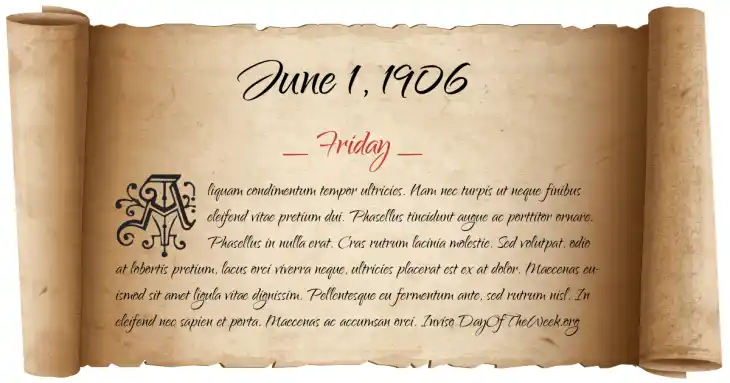 June 1, 1906
_ Friday _
Aliquam condimentum tempor ultricies. Nam nec turpis ut neque finibus
eleifend vitae pretium dui. Phasellus tincidunt augue ac porttitor ornare.
Phasellus in nulla erat. Cras rutrum lacinia molestie. Sed volutpat, odio
at lobortis pretium, lacus orci viverra neque, ultricies placerat est ex at dolor. Maecenas eu-
ismod sit amet ligula vitae dignissim. Pellentesque eu fermentum ante, sed rutrum nisl. In
eleifend nec sapien et porta. Maecenas ac accumsan orci. Inviso DayOfTheWeek.org